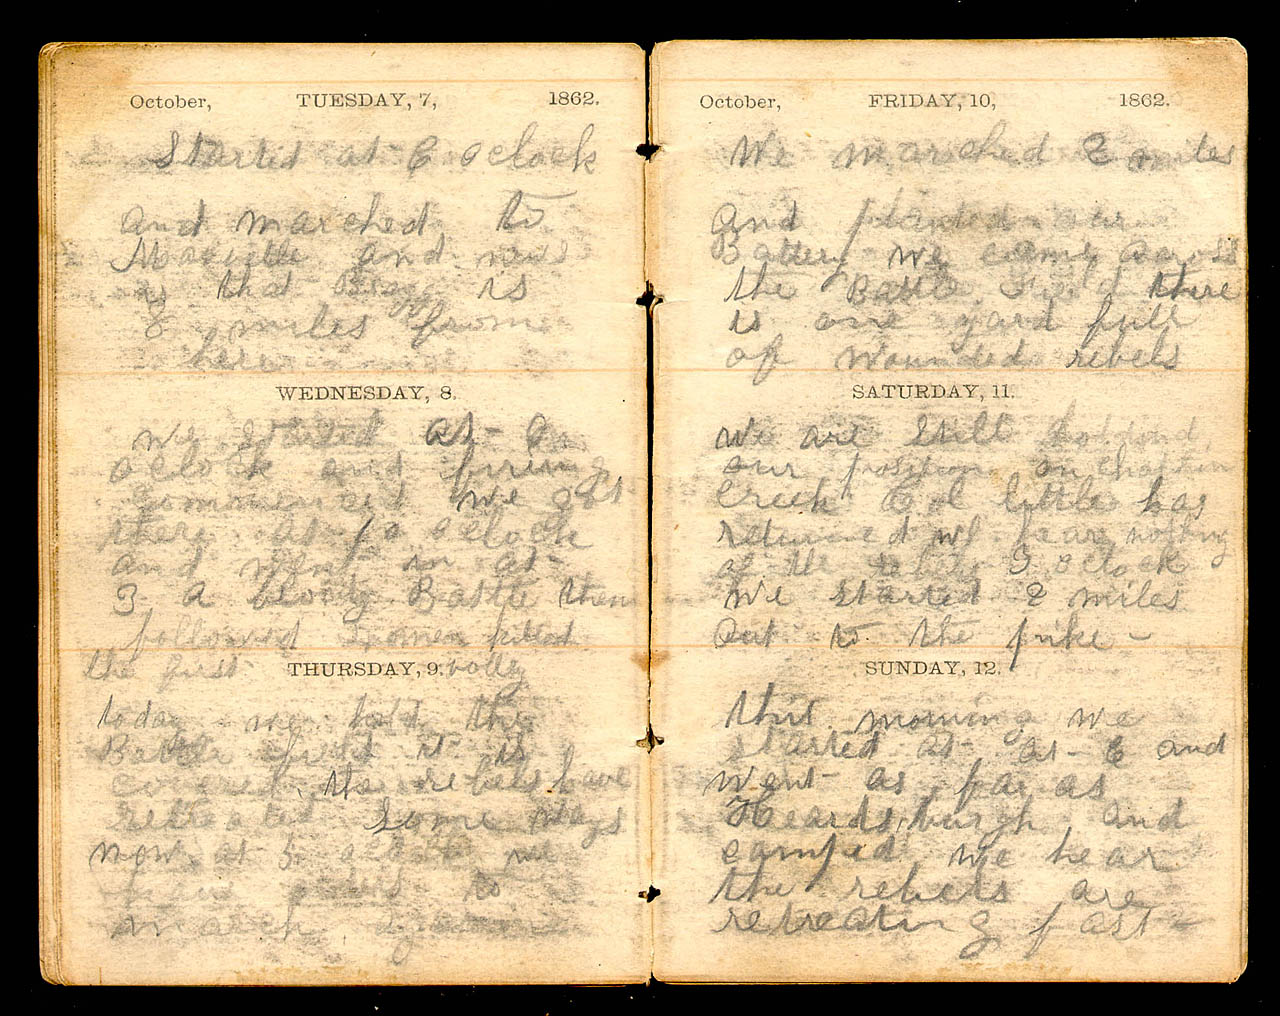 October, TUESDAY, 7, 1862.
Started at 6 oclock
and marched to
Maxville and news
is that Bragg is
8 miles from
here
WEDNESDAY, 8.
we started at 6
oclock and firing
commenced we got
there at 10 oclock
and went in at
3 A bloody Battle then
followed killed
the first volly
THURSDAY, 9.
today we hold the
Battle field it is
covered the rebels have
retreated Some ways
now at 5 oclock we
have orders to
march again
October, FRIDAY, 10, 1862.
We marched 2 miles
and planted our
Battery we came across
the Battle field there
is one yard full
of wounded rebels
SATURDAY, 11.
we are still
our position on chaplin
Creek Col little has
returned we hear nothing
of the rebels 3 oclock
We started 2 miles
out to the pike -
SUNDAY, 12.
this morning we
started at at 6 and
went as far as
Heardsburgh and
camped we hear
the rebels are
retreating fast -